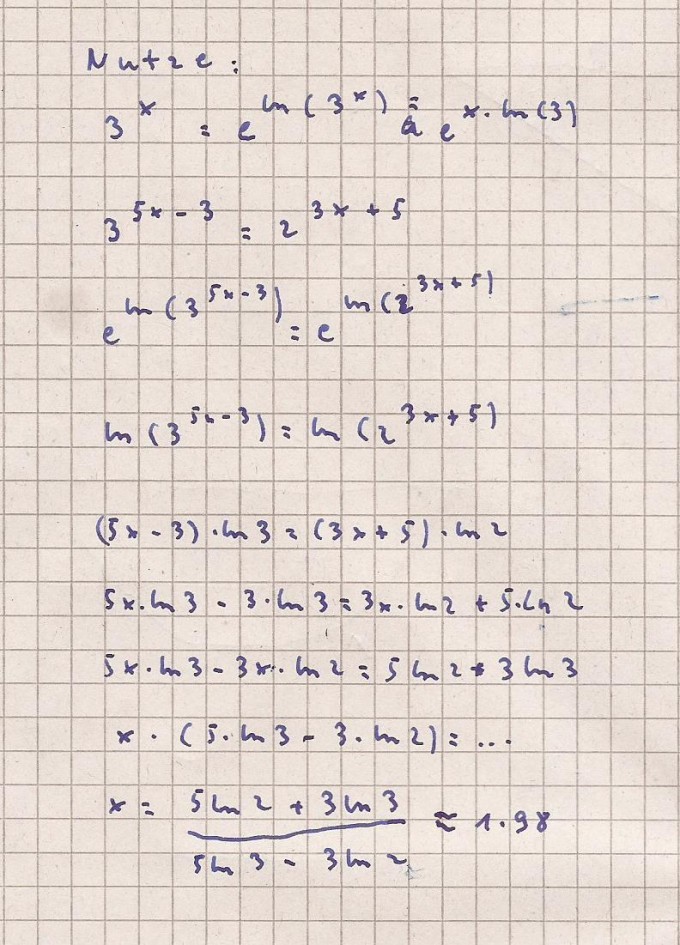 Nutze:
3^x = e^(ln(3^x)) = e^(x · ln(3))
3^(5x - 3) = 2^(3x + 5)
e^(ln(3^(5x - 3))) = e^(ln(2^(3x + 5)))
ln(3^(5x - 3)) = ln(2^(3x + 5))
(5x - 3) · ln 3 = (3x + 5) · ln 2
5x · ln 3 - 3 · ln 3 = 3x · ln 2 + 5 · ln 2
5x · ln 3 - 3x · ln 2 = 5 ln 2 + 3 ln 3
x · (5 · ln 3 - 3 · ln 2) = ...
x = (5 ln 2 + 3 ln 3) / (5 ln 3 - 3 ln 2) ≈ 1.98